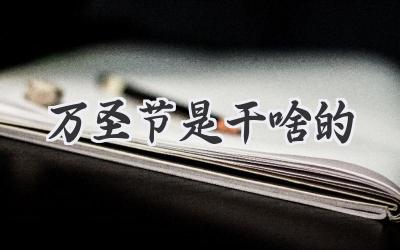 万圣节是干啥的